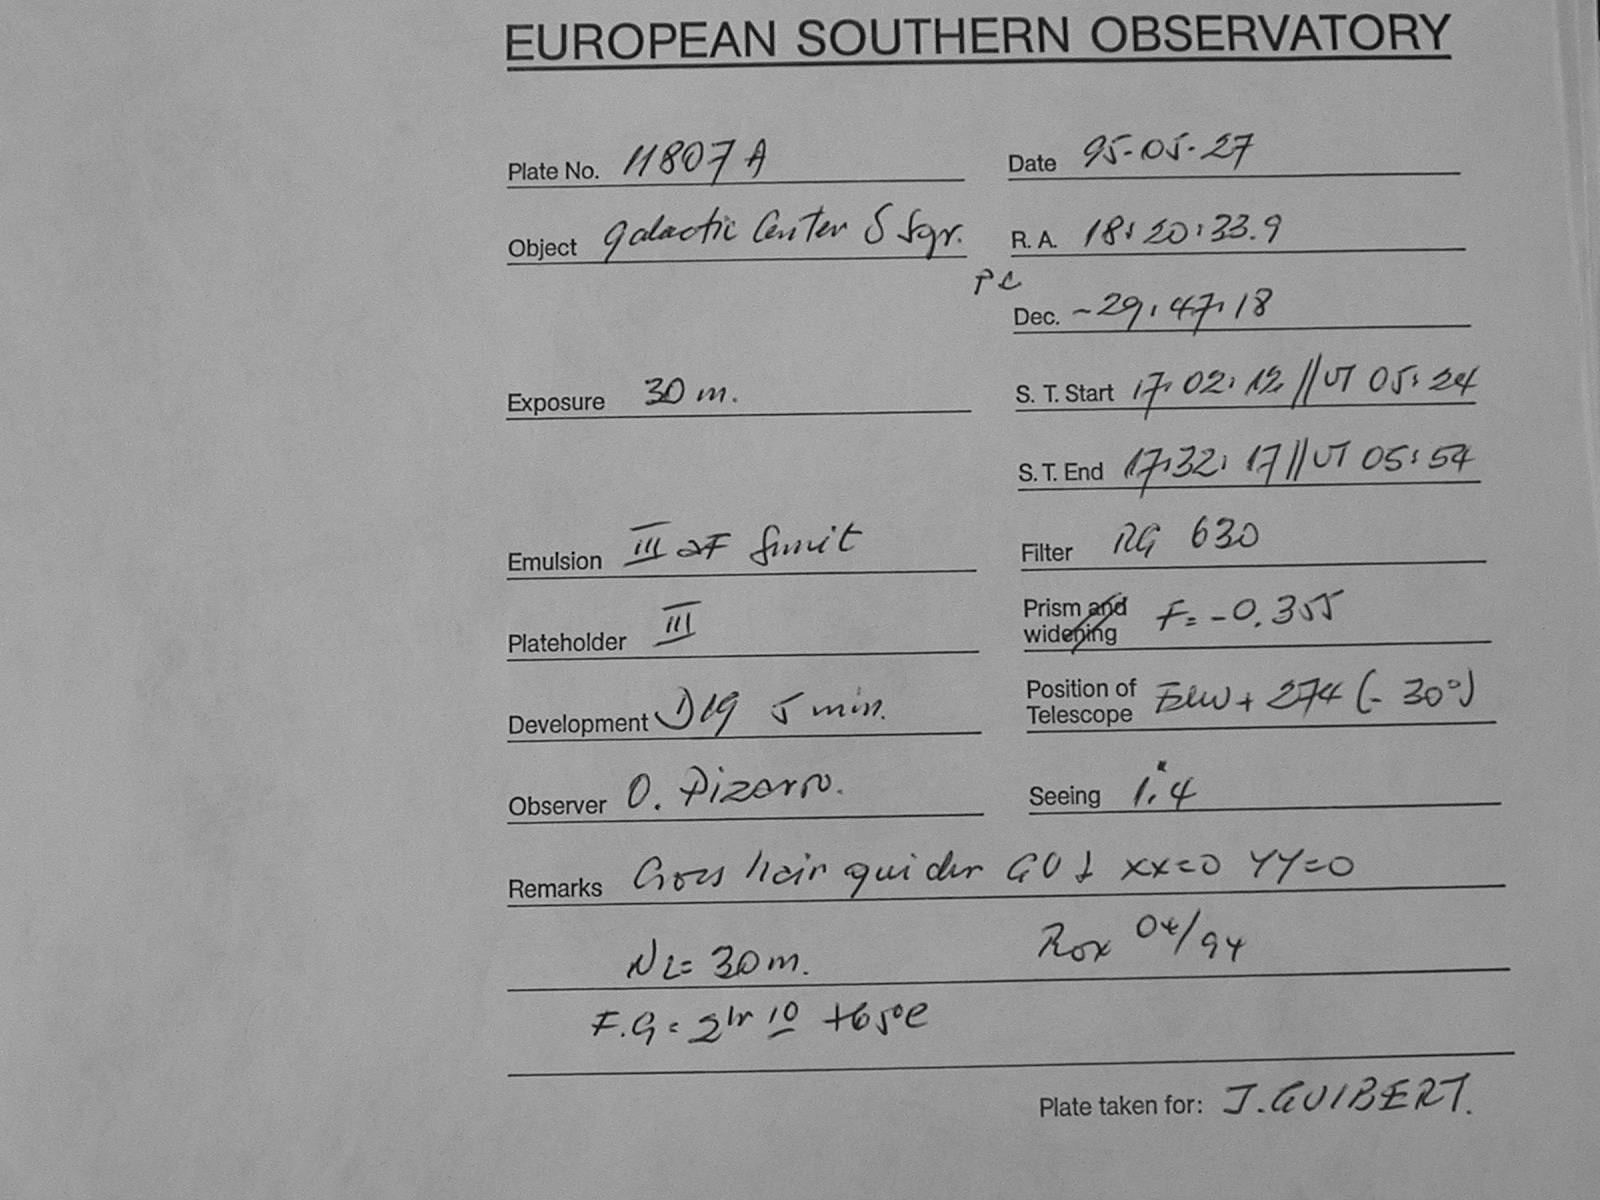 EUROPEAN SOUTHERN OBSERVATORY
Plate No. 11807 A Date 95-05-27
Object galactic Center S Sgr. R. A. 18:20:33.9
PC
Dec. -29:47:18
Exposure 30 m. S. T. Start 17:02:12 // UT 05:24
S. T. End 17:32:17 // UT 05:54
Emulsion III aF Filter RG 630
Plateholder III Prism and widening F= -0.355
Development D19 5 min. Position of Telescope + 274 (- 30°)
Observer O. Pizarro. Seeing 1".4
Remarks Cross hair guider XX=0 YY=0
N2= 30 m. 04/94
F.G = 2hr 10 +65°C
Plate taken for: J. GUIBERT.